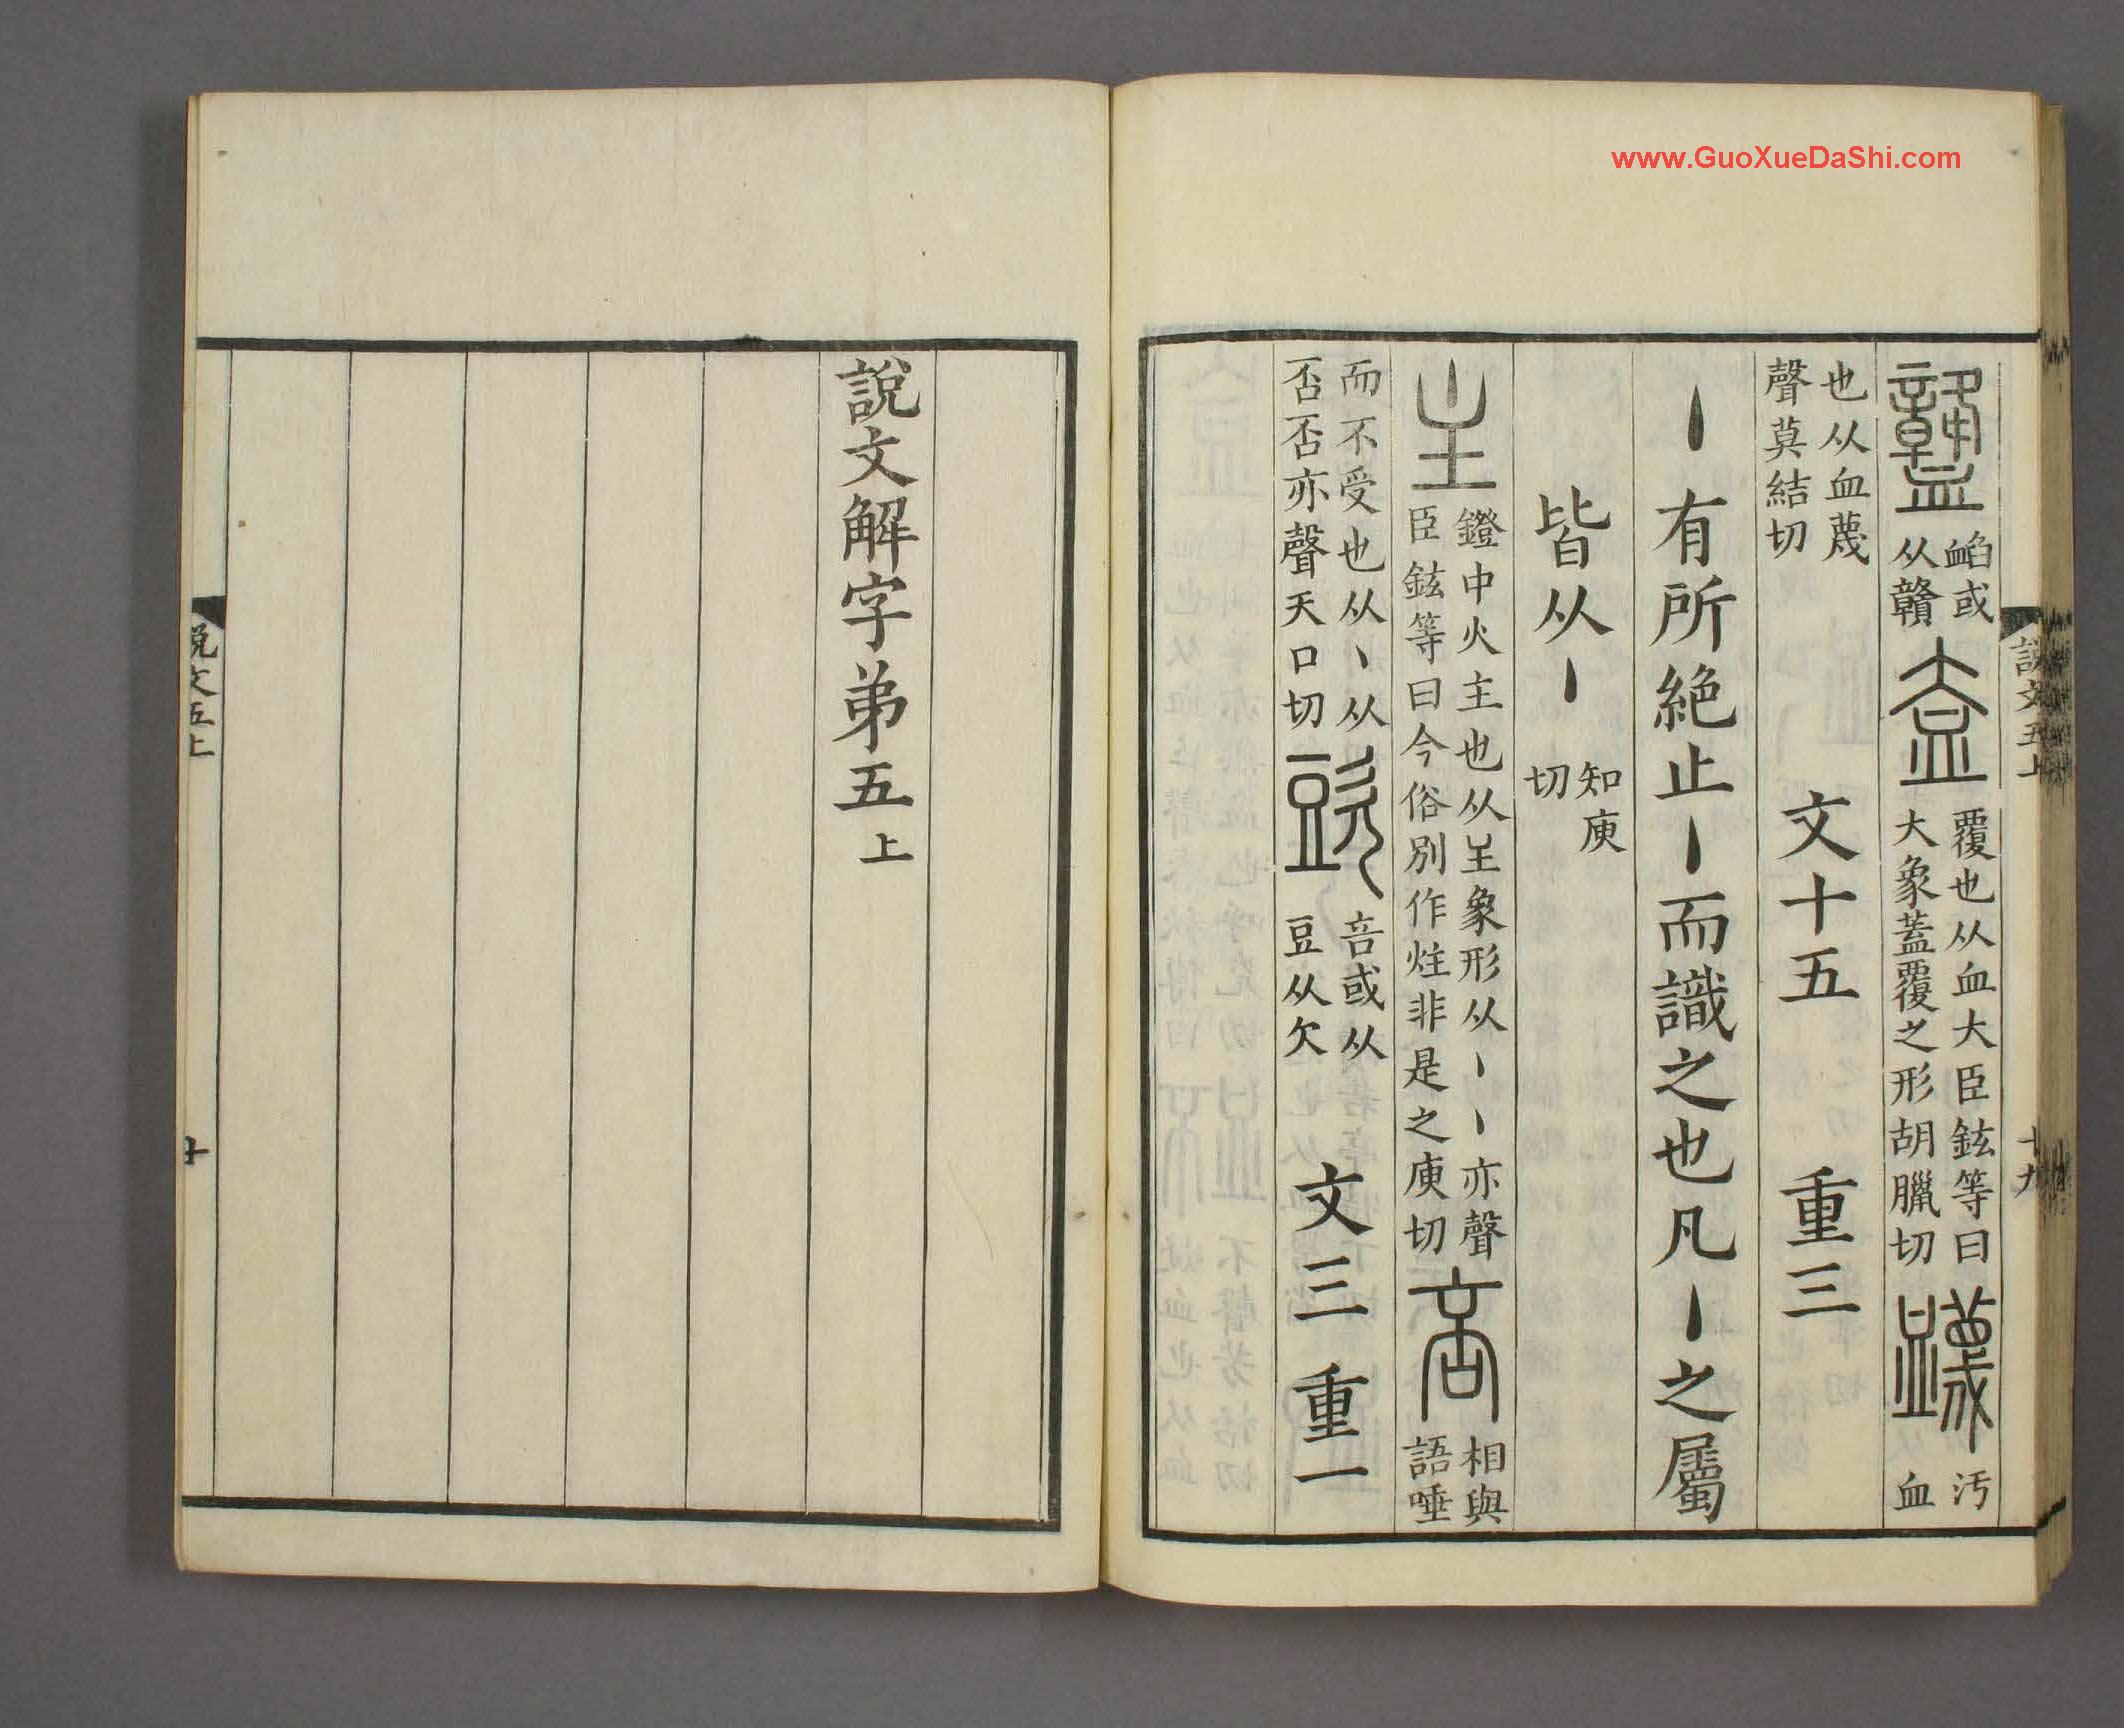 www.GuoXueDaShi.com
說文五上 十九
𧗕 䘓或从贛 盇 覆也从血大臣鉉等曰大象蓋覆之形胡臘切 衊 汚血
也从血蔑聲莫結切 文十五 重三
丶有所絶止丶而識之也凡丶之屬
皆从丶 知庾切
主 鐙中火主也从𡈼象形从丶丶亦聲臣鉉等曰今俗別作炷非是之庾切 咅 相與語唾
而不受也从丶从否否亦聲天口切 歕 咅或从豆从欠 文三 重一
說文解字弟五上
說文五上 廿